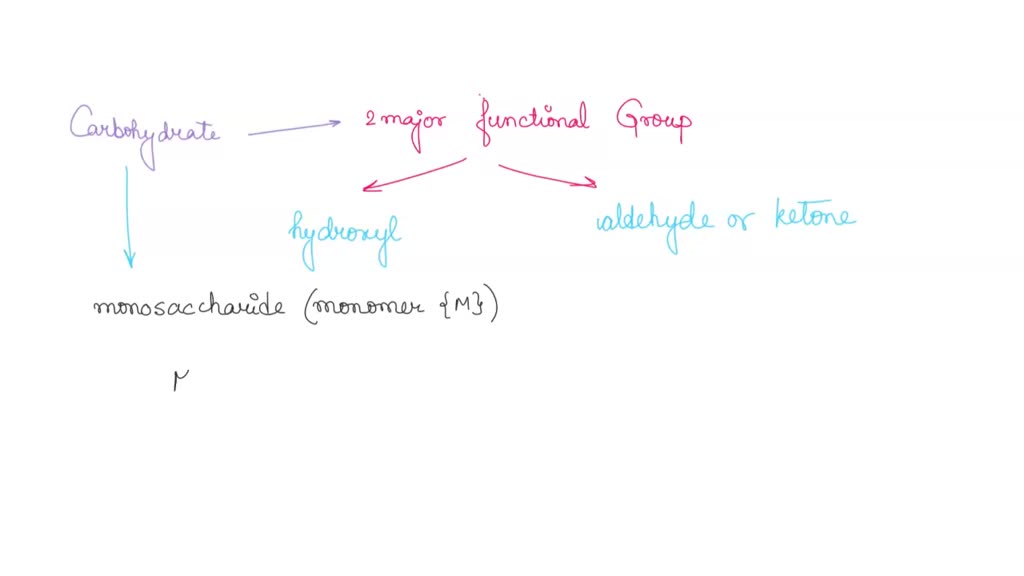 Carbohydrate → 2 major functional Group
hydroxyl aldehyde or ketone
monosaccharide (monomer {M})
M